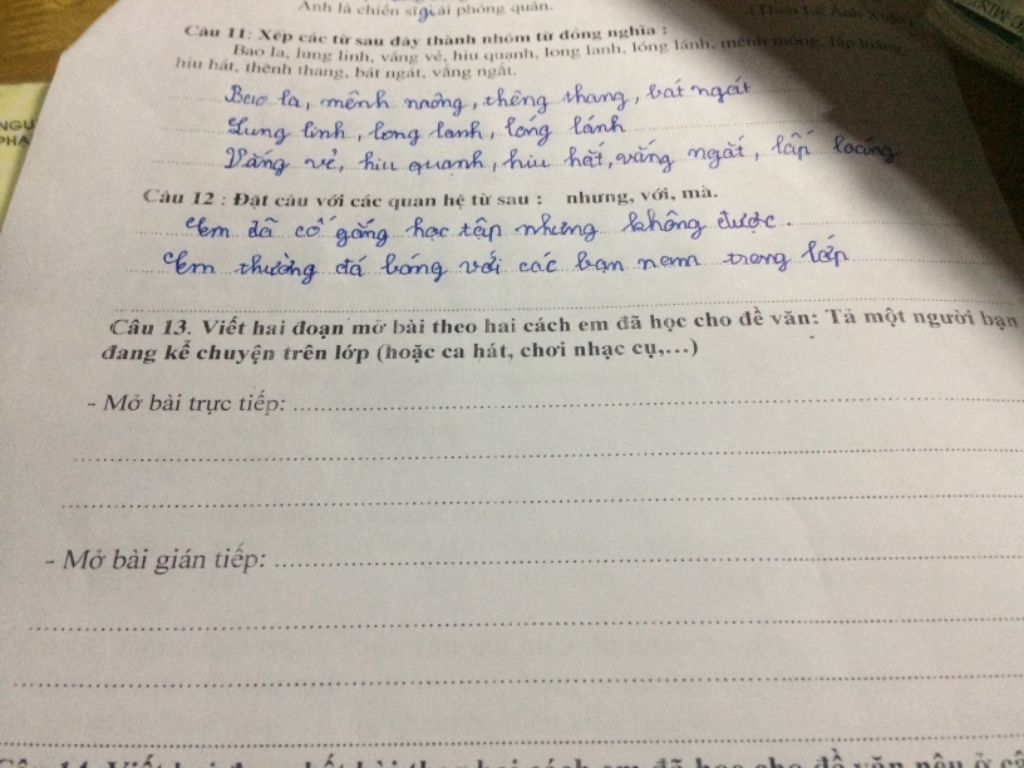 Anh là chiến sĩ giải phóng quân.
Câu 11: Xếp các từ sau đây thành nhóm từ đồng nghĩa :
Bao la, lung linh, vắng vẻ, hiu quạnh, long lanh, lóng lánh, mênh mông, lấp loáng,
hiu hắt, thênh thang, bát ngát, vắng ngắt.
Bao la, mênh mông, thêng thang, bát ngát
Lung linh, long lanh, lóng lánh
Vắng vẻ, hiu quạnh, hiu hắt, vắng ngắt, lấp loáng
Câu 12 : Đặt câu với các quan hệ từ sau : nhưng, với, mà.
Em đã cố gắng học tập nhưng không được.
Em thường đá bóng với các bạn nam trong lớp
Câu 13. Viết hai đoạn mở bài theo hai cách em đã học cho đề văn: Tả một người bạn
đang kể chuyện trên lớp (hoặc ca hát, chơi nhạc cụ,...)
- Mở bài trực tiếp:
- Mở bài gián tiếp: